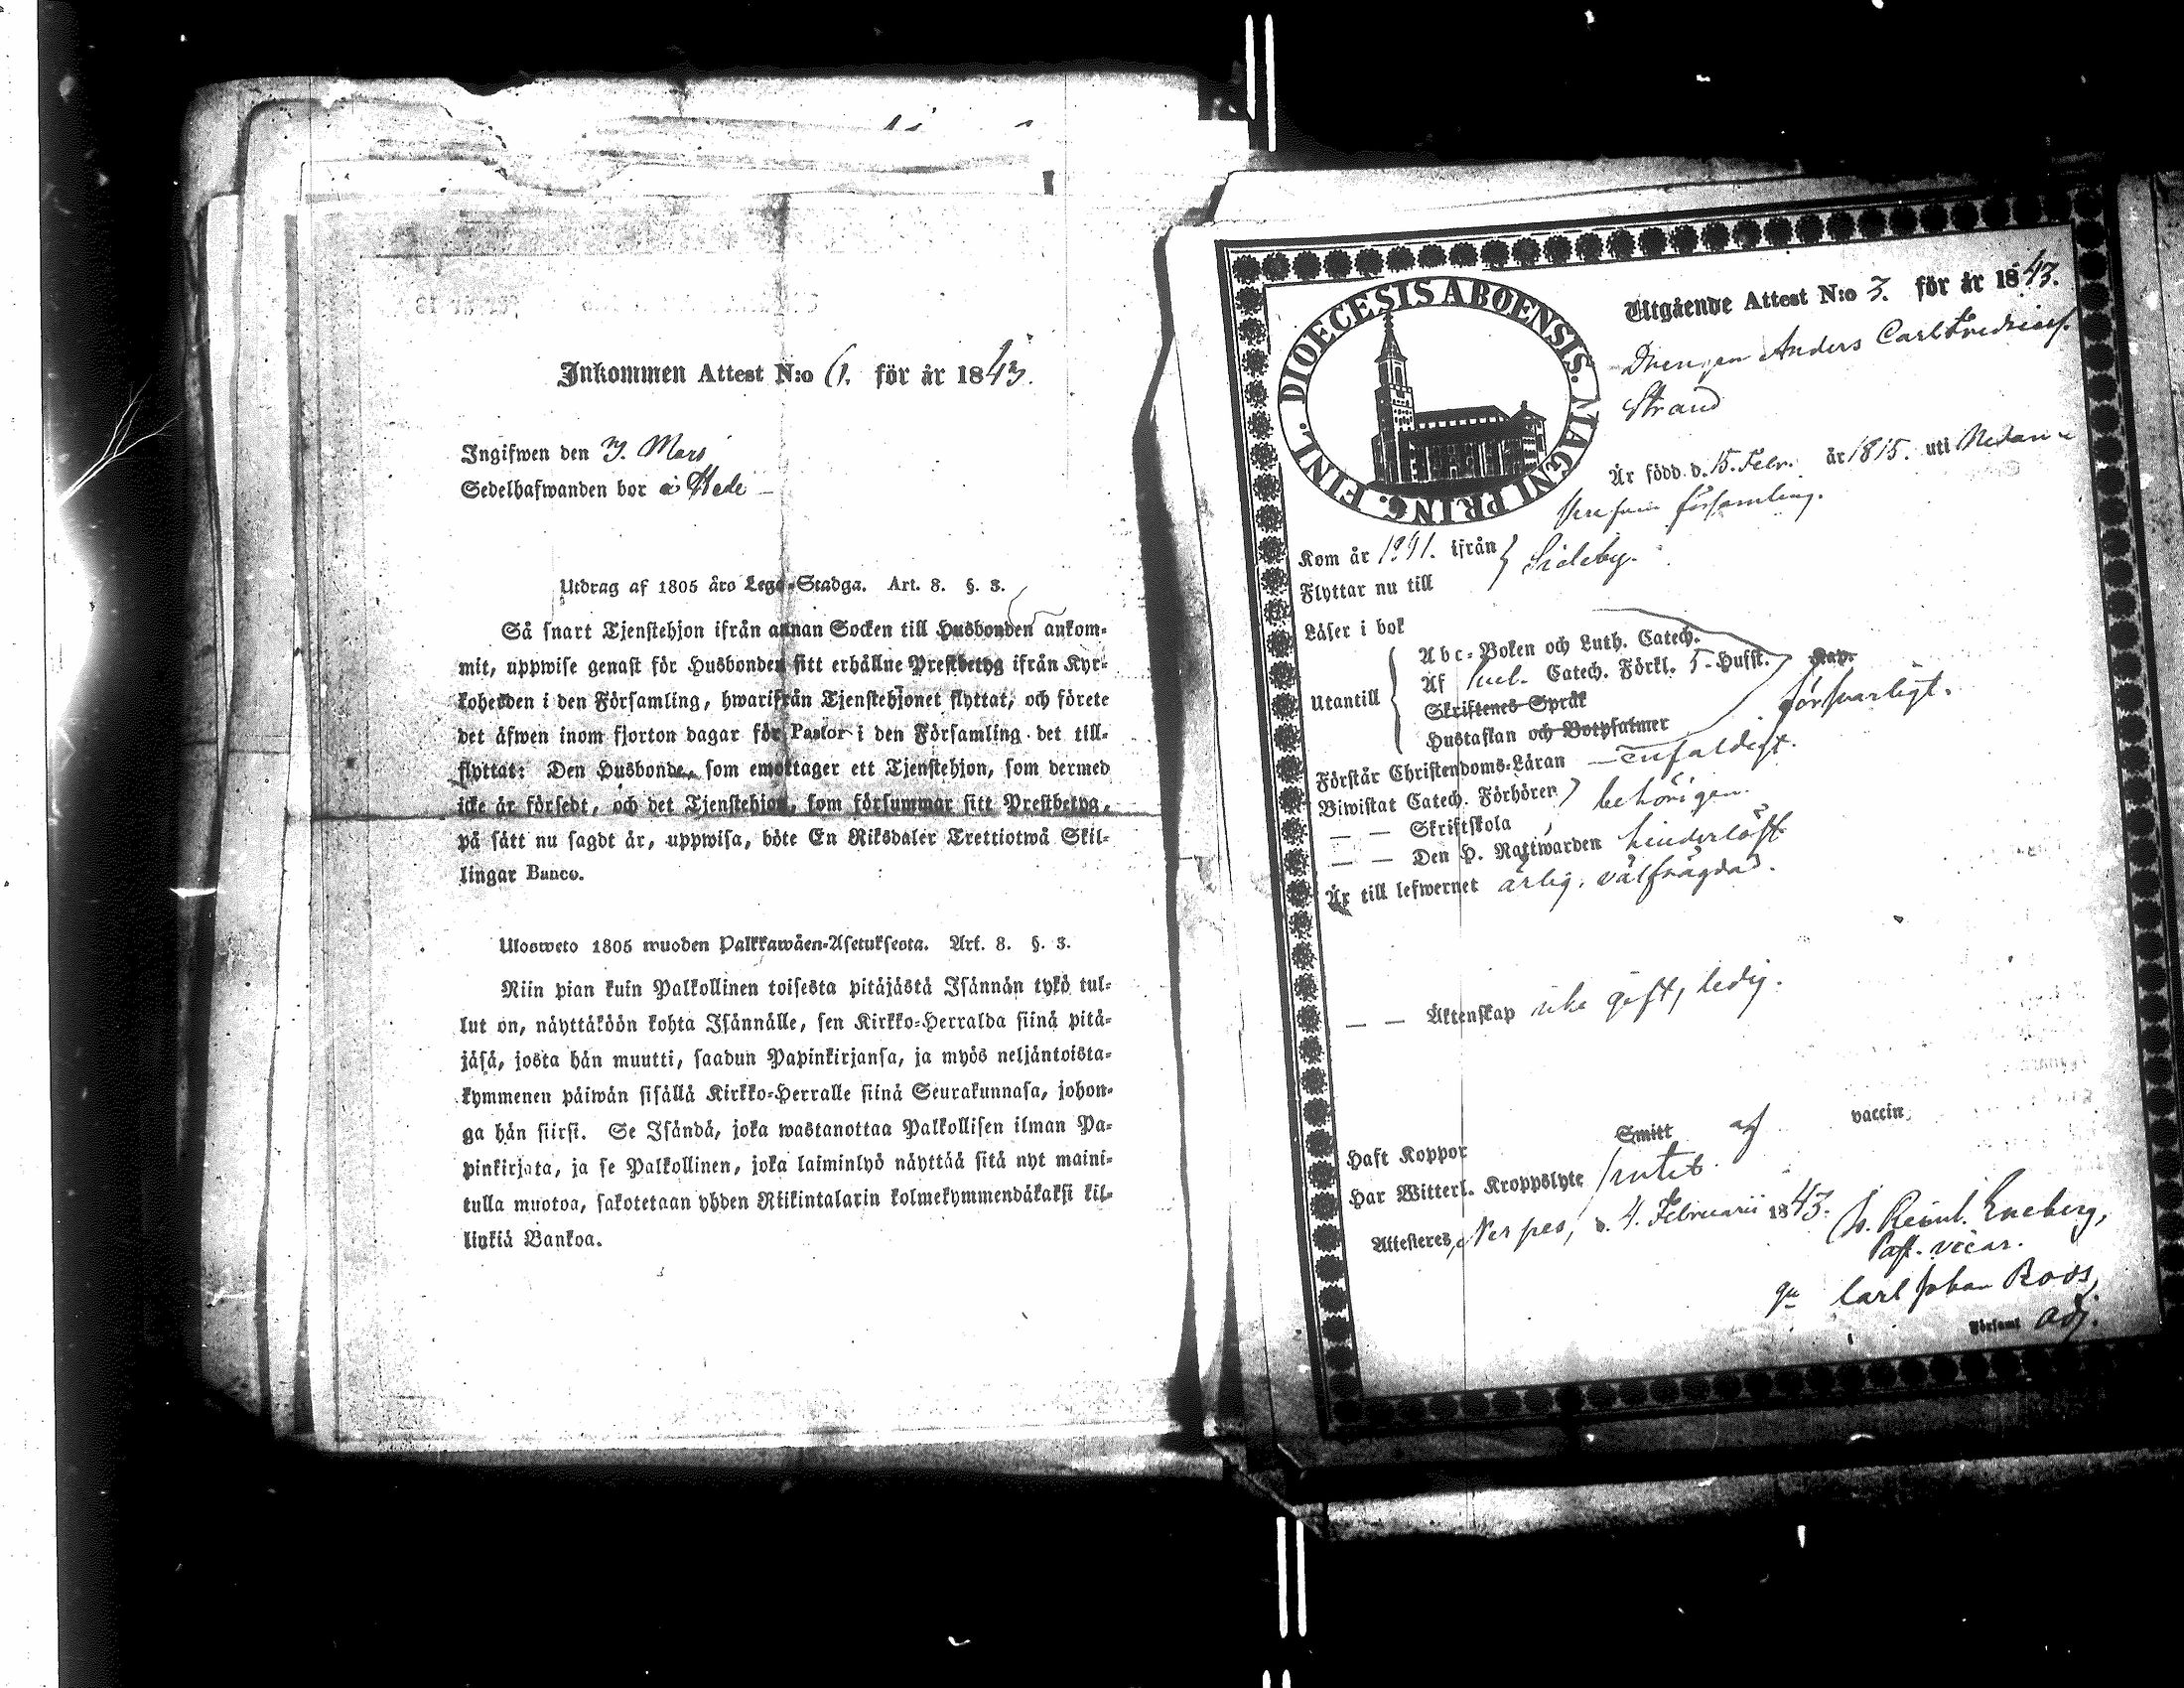 Inkommen Attest N:o 6. för år 1843.
Ingifwen den 7. Mars
Sedelhafwanden bor å Hede
Utdrag af 1805 års Lego-Stadga. Art. 8. §. 3.
Så snart Tjenstehjon ifrån annan Socken till Husbonden ankom-
mit, uppwise genast för Husbonden sitt erhållne Prestbetyg ifrån Kyr-
koherden i den Församling, hwarifrån Tjenstehjonet flyttat, och förete
det äfwen inom fjorton dagar för Pastor i den Församling det till-
flyttat: Den Husbonde, som emottager ett Tjenstehjon, som dermed
icke är försedt, och det Tjenstehjon, som försummar sitt Prestbetyg,
på sätt nu sagdt är, uppwisa, böte En Riksdaler Trettiotwå Skil-
lingar Banco.
Ulosweto 1805 wuoden Palkkawäen-Asetuksesta. Art. 8. §. 3.
Niin pian kuin Palkollinen toisesta pitäjästä Isännän tykö tul-
lut on, näyttäköön kohta Isännälle, sen Kirkko-Herralda siinä pitä-
jäsä, josta hän muutti, saadun Papinkirjansa, ja myös neljäntoista-
kymmenen päiwän sisällä Kirkko-Herralle siinä Seurakunnasa, johon-
ga hän siirsi. Se Isändä, joka wastanottaa Palkollisen ilman Pa-
pinkirjata, ja se Palkollinen, joka laiminlyö näyttää sitä nyt maini-
tulla muotoa, sakotetaan yhden Riikintalarin kolmekymmendäkaksi kil-
linkiä Bankoa.
DIOECESIS ABOENSIS. MAGNI PRINC. FINL.
Utgående Attest N:o 3. för år 1843.
Drengen Anders Carl Fredricss.
Strand
Är född d. 15. Febr. år 1815. uti
församling.
Kom år 1841. ifrån } Sideby.
Flyttar nu till
Läser i bok
Abc-Boken och Luth. Catech.
Utantill { Af Catech. Förkl. 5. Hufst. Kap. försvarligt.
Skriftenes Språk
Hustaflan och Botpsalmer
Förstår Christendoms-Läran enfaldigt.
Biwistat Catech. Förhören } behörigen.
— — Skriftskola
— — Den H. Nattwarden hinderlöst
Är till lefwernet ärlig, välfrägdad.
— — Äktenskap icke gift, ledig.
Haft Koppor Smitt af vaccin
Har Witterl. Kroppslyte intet.
Attesteres, Nerpes, d. 4. Februarii 1843. Eneberg,
Past. vicar.
gm Carl Johan Roos,
Församl adj.